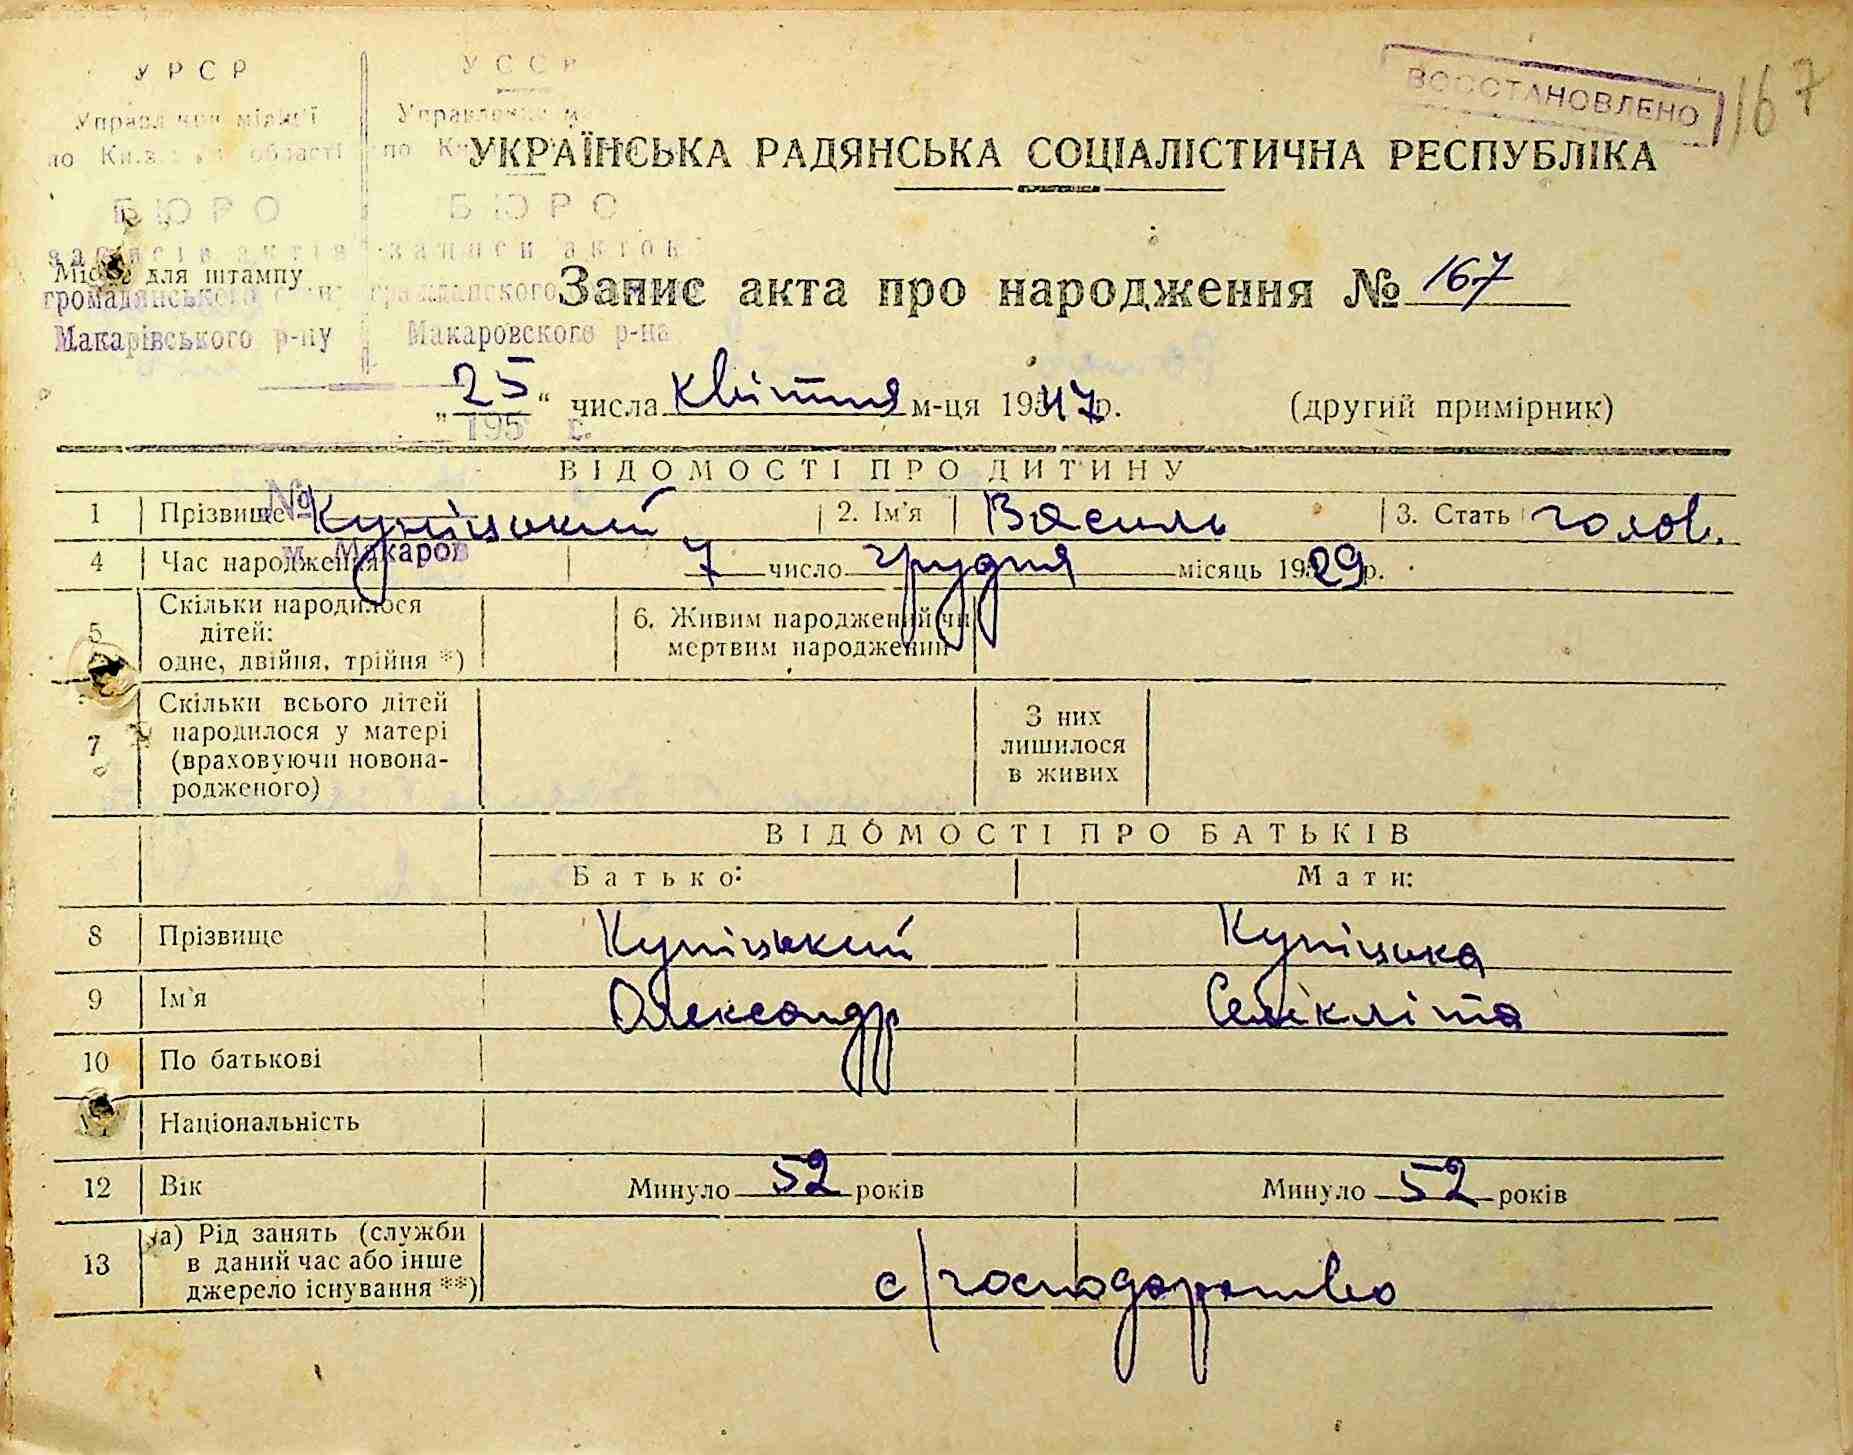 УРСР
УССР
ВОССТАНОВЛЕНО
167
по області по
УКРАЇНСЬКА РАДЯНСЬКА СОЦІАЛІСТИЧНА РЕСПУБЛІКА
БЮРО БЮРО
записів актів записи актов
Місце для штампу
громадянського гражданского
Запис акта про народження № 167
Макарівського р-ну Макаровского р-на
„25“ числа квітня м-ця 1947 р. (другий примірник)
195 г.
ВІДОМОСТІ ПРО ДИТИНУ
1 Прізвище Купіцький 2. Ім'я Василь 3. Стать чолов.
№
м. Макаров
4 Час народження 7 число грудня місяць 1929 р.
5 Скільки народилося дітей: одне, двійня, трійня *) 6. Живим народжений чи мертвим народжений
7 Скільки всього дітей народилося у матері (враховуючи новонародженого) З них лишилося в живих
ВІДОМОСТІ ПРО БАТЬКІВ
Батько: Мати:
8 Прізвище Купіцький Купіцька
9 Ім'я Олександр
10 По батькові
Національність
12 Вік Минуло 52 років Минуло 52 років
13 а) Рід занять (служби в даний час або інше джерело існування **) с/господарство